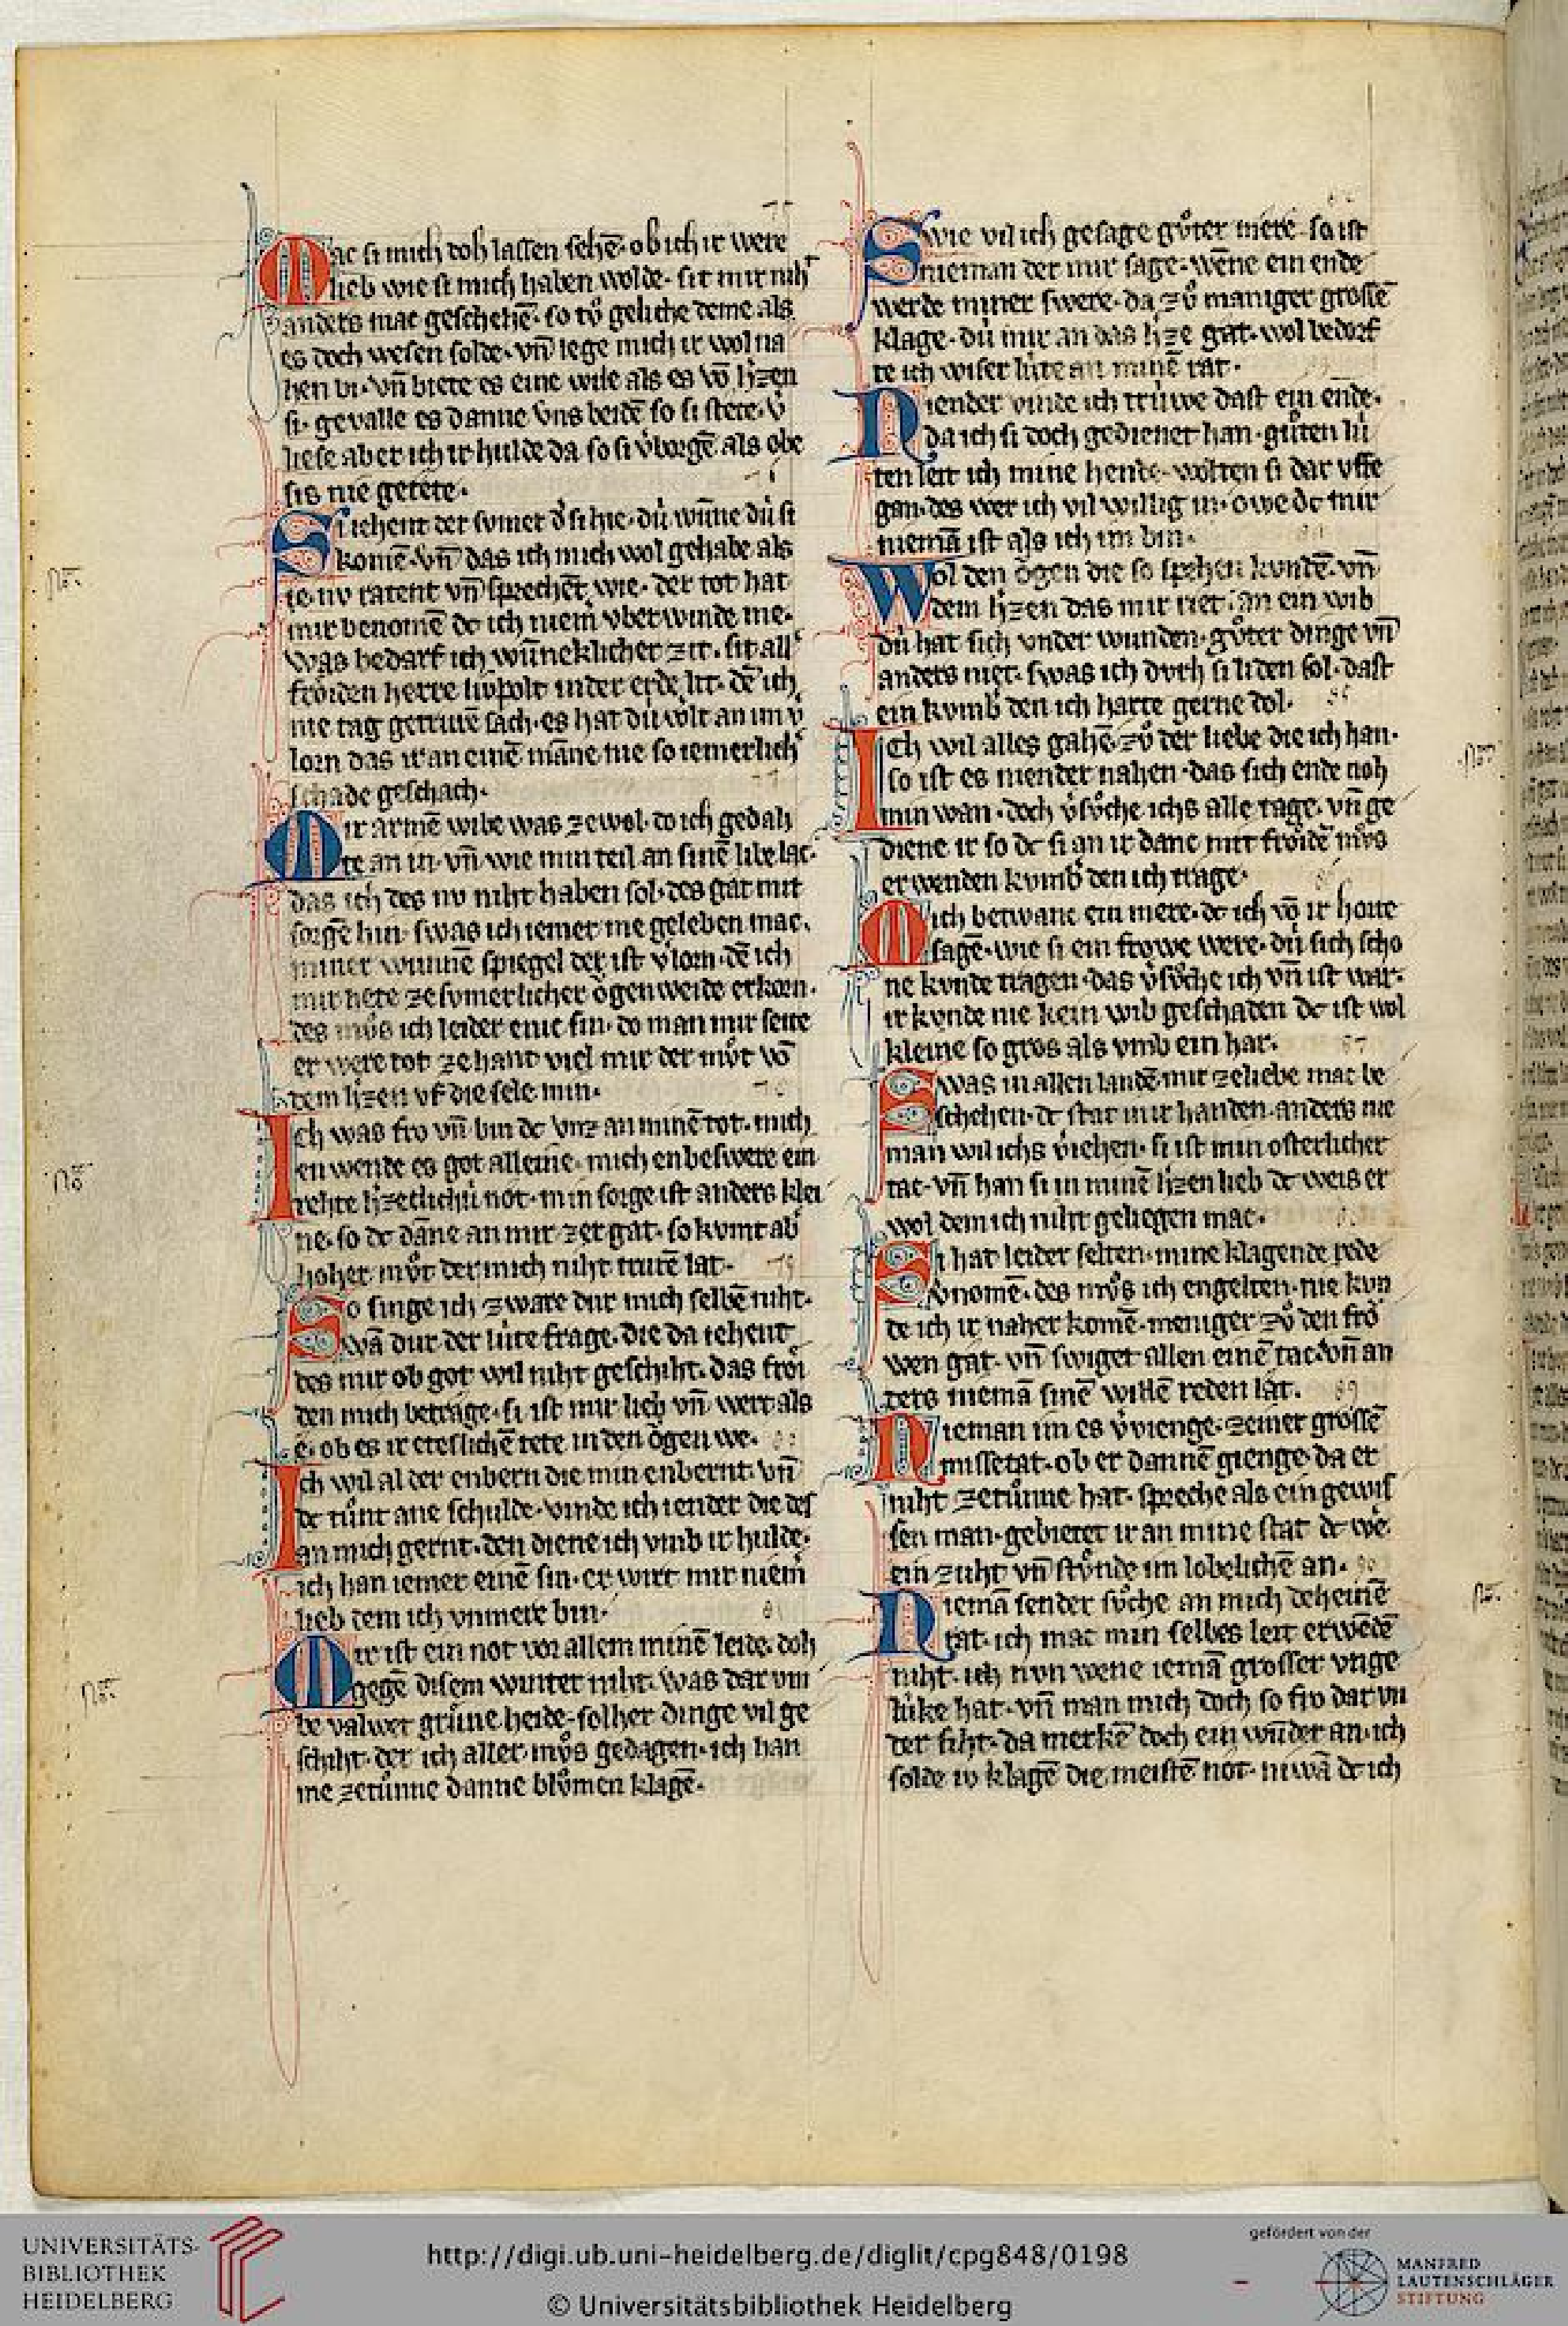 Mac si mich doh lassen sehē· ob ich ir were
lieb wie si mich haben wolde· sit mir niht
anders mac geschehē· so tů geliche deme als
es doch wesen solde· vn̄ lege mich ir wol na
hen bi· vn̄ biete es eine wile als es vō h̕zen
si· gevalle es danne vns beidē so si stete· v̕
liese aber ich ir hulde da so si v̕borgē als obe
sis nie getete·
Si iehent der sumer d̕ si hie· dú wūne dú si
komē· vn̄ das ich mich wol gehabe als
ie· nv ratent vn̄ sprechēt wie· der tot hat
mir benomē dc ich niem̕ vberwinde me·
was bedarf ich wūneklicher zit· sit all̕
frôiden herre lúpolt in der erde lit· dē ich
nie tag getrurē sach· es hat dú welt an im v̕
lorn das ir an einē māne nie so iemerlich̕
schade geschach·
Mir armē wibe was ze wol· do ich gedah
te an in· vn̄ wie min teil an sinē libe lac·
das ich des nv niht haben sol· des gat mit
sorgē hin· swas ich iemer me geleben mac·
miner wunnē spiegel der ist v̕lorn· dē ich
mir hete ze sumerlicher ôgenweide erkorn·
des můs ich leider enic sin· do man mir seite
er were tot zehant viel mir der můt vō
dem h̕zen vf die sele min·
Ich was fro vn̄ bin dc vnz an minē tot· mich
en wende es got alleine· mich enbeswere ein
rehte h̕zeclichú not· min sorge ist anders klei
ne· so dc dāne an mir zergat· so kumt ab̕
hoher můt der mich niht trurē lat·
So singe ich zware dur mich selbē niht·
wā dur der lúte frage· die da iehent
des mir ob got wil niht geschiht· das frôi
den mich betrage· si ist mir lieb vn̄ wert als
e· ob es ir eteslichē tete in den ôgen we·
Ich wil al der enbern die min enbernt· vn̄
dc tůnt ane schulde· vinde ich iender die des
an mich gernt· den diene ich vmb ir hulde·
ich han iemer einē sin· er wirt mir niem̕
lieb dem ich vnmere bin·
Mir ist ein not vor allem minē leide· doh
gegē disem winter niht· was dar vm
be valwet grůne heide· solher dinge vil ge
schiht· der ich aller můs gedagen· ich han
me zetůnne danne blůmen klagē·
Swie vil ich gesage gůter mere· so ist
nieman der mir sage· wēne ein ende
werde miner swere· da zů maniger grossē
klage· dú mir an das h̕ze gat· wol bedorf
te ich wiser lúte an minē rat·
Niender vinde ich trúwe dast ein ende·
da ich si doch gedienet han· gůten lú
ten leit ich mine hende· wolten si dar vffe
gan· des wer ich vil willig in· owe dc mir
niemā ist als ich im bin·
Wol den ôgen die so spehen kvndē· vn̄
dem h̕zen das mir riet· an ein wib
dú hat sich vnder wunden· gůter dinge vn̄
anders niet· swas ich dvrh si liden sol· dast
ein kvmb̕ den ich harte gerne dol·
Ich wil alles gahē· zů der liebe die ich han·
so ist es niender nahen· das sich ende noh
min wan· doch v̕sůche ichs alle tage· vn̄ ge
diene ir so dc si an ir danc mit frôidē můs
erwenden kvmb̕ den ich trage·
Mich betwanc ein mere· dc ich vō ir horte
sagē· wie si ein frowe were· dú sich scho
ne kvnde tragen· das v̕sůche ich vn̄ ist war·
ir kvnde nie kein wib geschaden dc ist wol
kleine so gros als vmb ein har·
Swas in allen landē· mir zeliebe mac be
schehen· dc stat in ir handen· anders nie
man wil ichs v̕iehen· si ist min osterlicher
tac· vn̄ han si in minē h̕zen lieb dc weis er
wol dem ich niht geliegen mac·
Si hat leider selten· mine klagende rede
v̕nomē· des můs ich engelten· nie kvn
de ich ir naher komē· meniger zů den fro
wen gat· vn̄ swiget allen einē tac· vn̄ an
ders niemā sinē willē reden lat·
Nieman im es v̕vienge· zeiner grossē
missetat· ob er dannē gienge· da er
niht zetůnne hat· spreche als ein gewis
sen man· gebietet ir an mine stat dc we·
ein zuht vn̄ stůnde im lobelichē an·
Niemā sender sůche an mich deheinē
rat· ich mac min selbes leit erwēdē
niht· ich nvn wene iemā grosser vnge
lúke hat· vn̄ man mich doch so fro dar vn
der siht· da merkē doch ein wūder an· ich
solde iv klagē die meistē not· niwā dc ich
UNIVERSITÄTS-
BIBLIOTHEK
HEIDELBERG
http://digi.ub.uni-heidelberg.de/diglit/cpg848/0198
© Universitätsbibliothek Heidelberg
gefördert von der
MANFRED
LAUTENSCHLÄGER
STIFTUNG